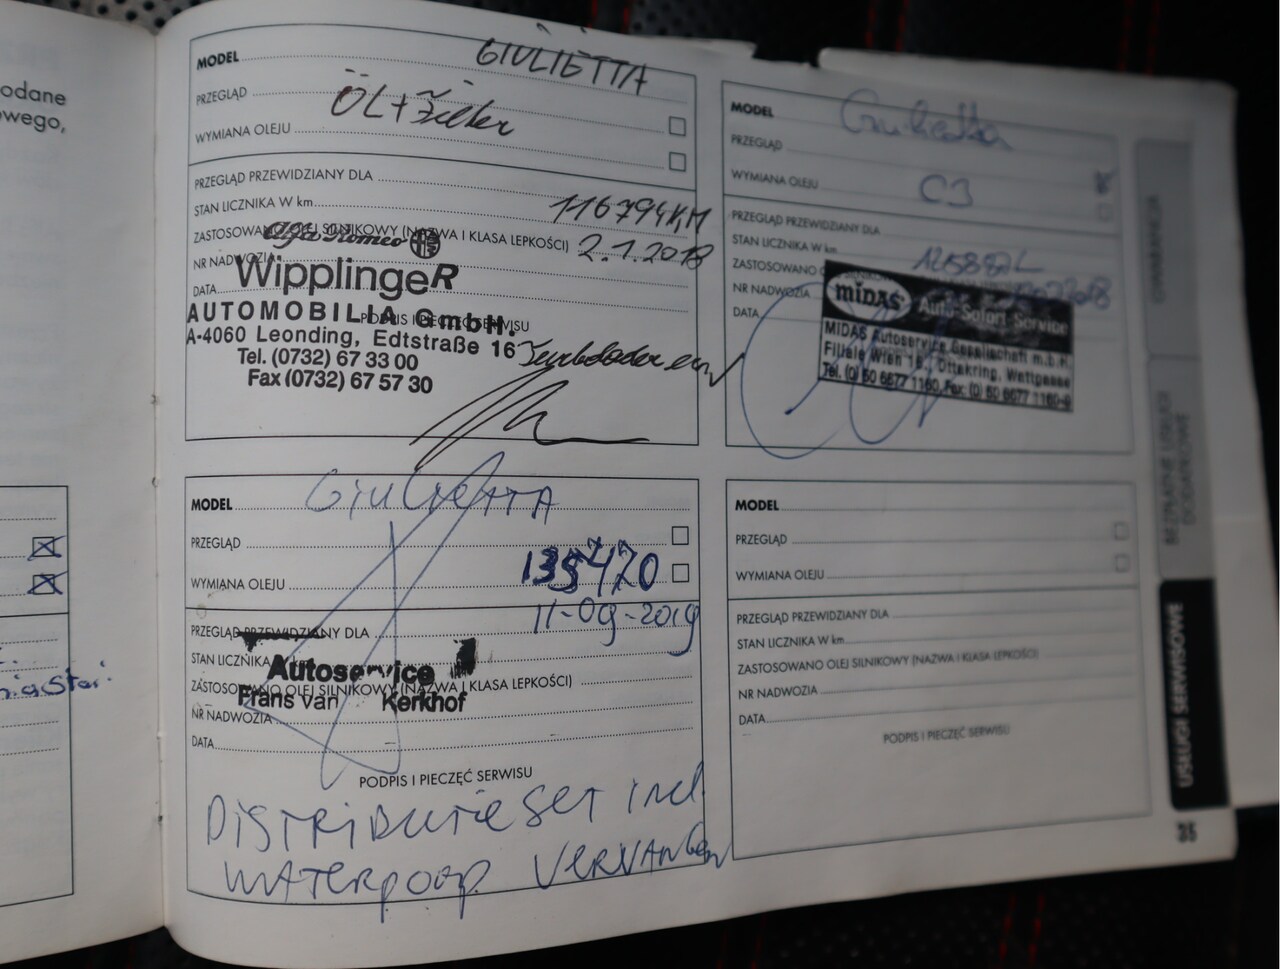 odane
owego,
MODEL GIULIETTA
PRZEGLĄD ÖL + Filter
WYMIANA OLEJU
PRZEGLĄD PRZEWIDZIANY DLA
STAN LICZNIKA W km 116794KM
ZASTOSOWANO OLEJ SILNIKOWY (NAZWA I KLASA LEPKOŚCI) 2.1.2018
Alfa Romeo
NR NADWOZIA
WipplingeR
DATA
PODPIS I PIECZĘĆ SERWISU
AUTOMOBIL A GmbH.
A-4060 Leonding, Edtstraße 16
Tel. (0732) 67 33 00
Fax (0732) 67 57 30
MODEL Giulietta
PRZEGLĄD
WYMIANA OLEJU C3
PRZEGLĄD PRZEWIDZIANY DLA
STAN LICZNIKA W km
ZASTOSOWANO
NR NADWOZIA
DATA
MIDAS Auto-Sofort-Service
MIDAS Autoservice Gesellschaft m.b.H.
Filiale Wien 16., Ottakring, Wattgasse
Tel. (0) 50 6677 1160, Fax: (0) 50 6677 1160-9
MODEL GIULIETTA
PRZEGLĄD
WYMIANA OLEJU 135470
11-09-2019
PRZEGLĄD PRZEWIDZIANY DLA
STAN LICZNIKA
Autoservice
ZASTOSOWANO OLEJ SILNIKOWY (NAZWA I KLASA LEPKOŚCI)
Frans van Kerkhof
NR NADWOZIA
DATA
PODPIS I PIECZĘĆ SERWISU
DISTRIBUTIE SET incl.
WATERPOMP VERVANGEN
MODEL
PRZEGLĄD
WYMIANA OLEJU
PRZEGLĄD PRZEWIDZIANY DLA
STAN LICZNIKA W km
ZASTOSOWANO OLEJ SILNIKOWY (NAZWA I KLASA LEPKOŚCI)
NR NADWOZIA
DATA
PODPIS I PIECZĘĆ SERWISU
GWARANCJA
BEZPŁATNE USŁUGI
DODATKOWE
USŁUGI SERWISOWE
35